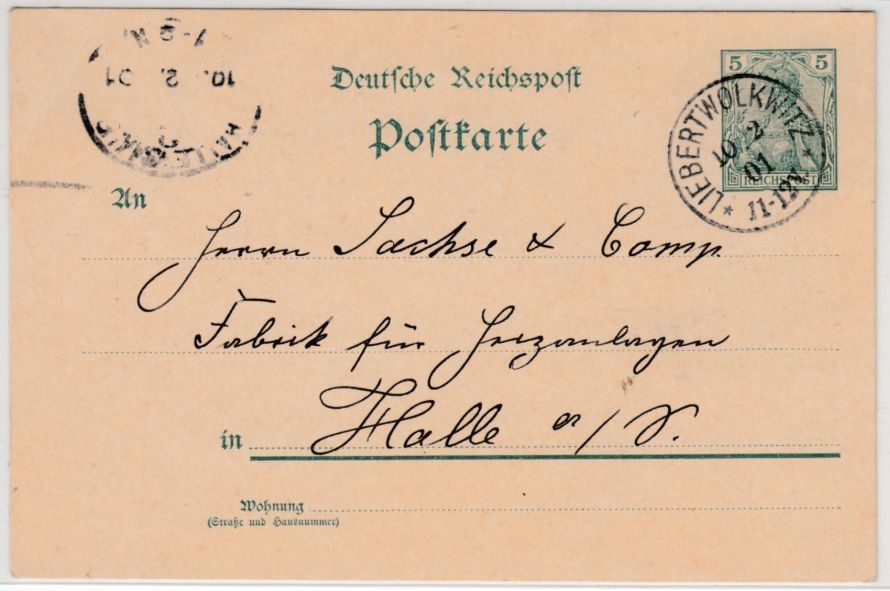 Deutsche Reichspost
Postkarte
5 5
REICHSPOST
LIEBERTWOLKWITZ
10 2
01
11-12V
10. 2. 01
An
Herrn Sachse & Comp.
Fabrik für Heizanlagen
in Halle a/S.
Wohnung
(Straße und Hausnummer)